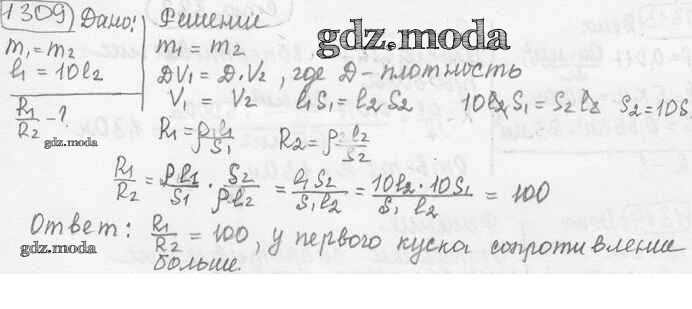 1309 Дано: Решение
gdz.moda
m₁ = m₂
l₁ = 10l₂
R₁/R₂ - ?
gdz.moda
m₁ = m₂
DV₁ = D·V₂, где D - плотность
V₁ = V₂ l₁S₁ = l₂S₂ 10l₂S₁ = S₂l₂ S₂ = 10S₁
R₁ = ρl₁/S₁ R₂ = ρ l₂/S₂
R₁/R₂ = ρl₁/S₁ · S₂/ρl₂ = l₁S₂/S₁l₂ = 10l₂·10S₁/S₁l₂ = 100
Ответ: R₁/R₂ = 100, у первого куска сопротивление
больше.
gdz.moda